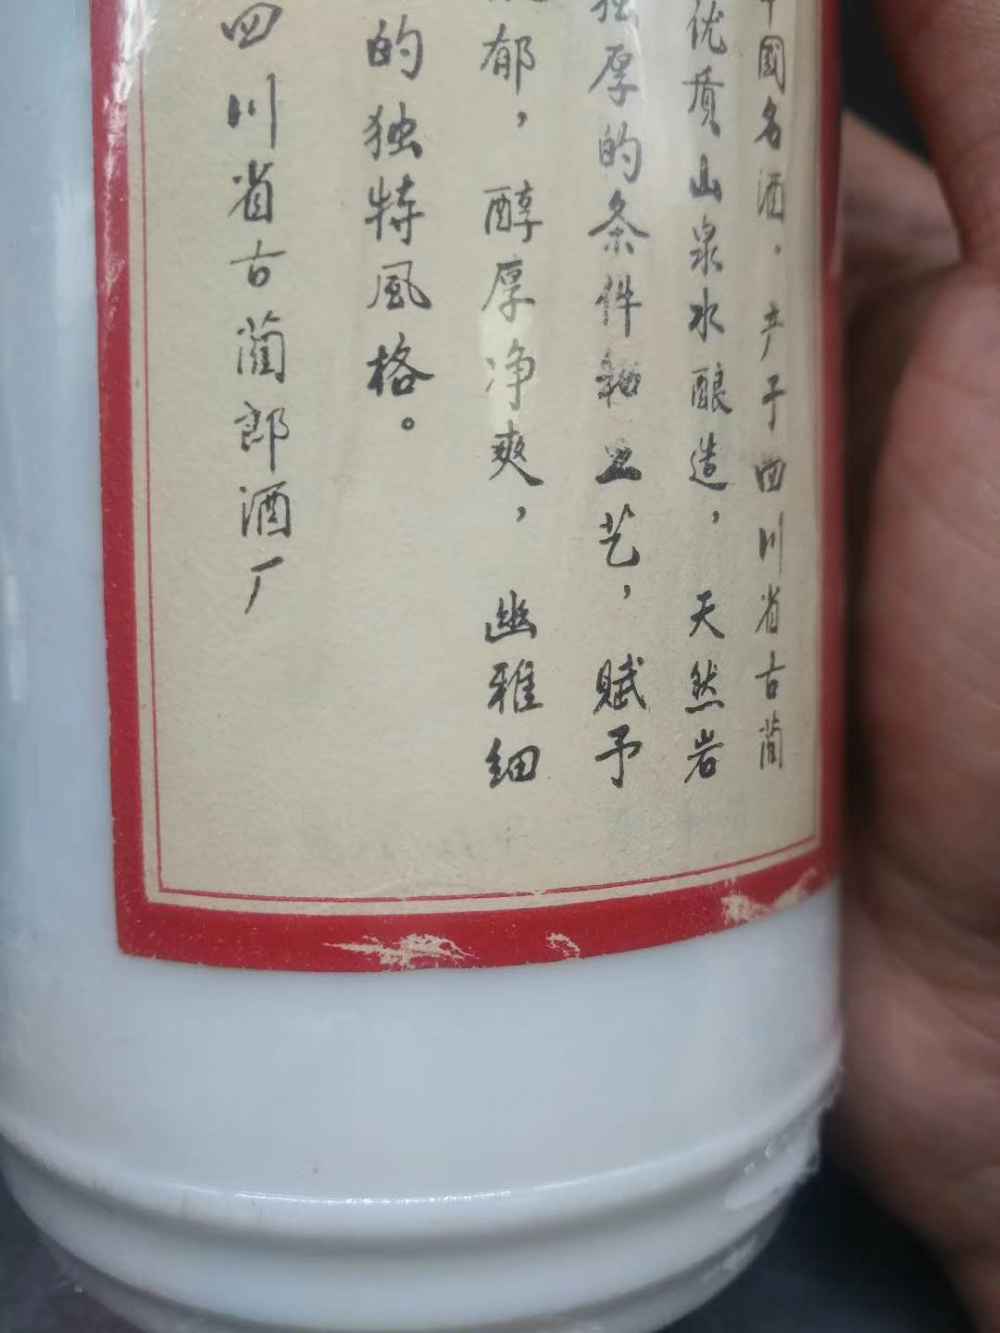 中國名酒。产于四川省古蔺
优质山泉水酿造，天然岩
厚的条件和工艺，赋予
郁，醇厚净爽，幽雅细
的独特風格。
四川省古蔺郎酒厂